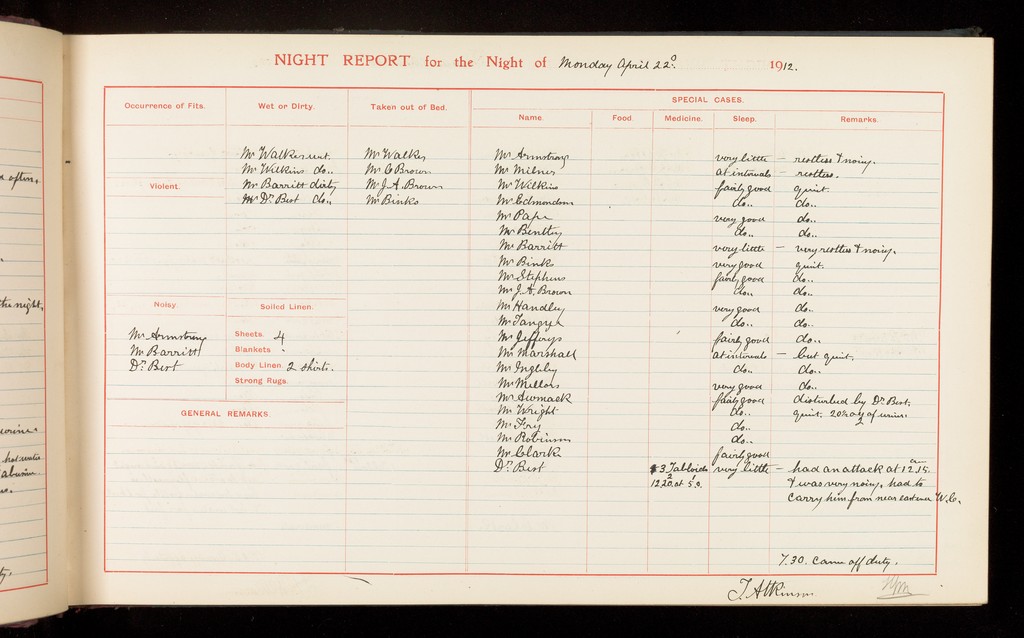 NIGHT REPORT for the Night of Monday April 22d. 1912.
Occurrence of Fits.
Wet or Dirty.
Taken out of Bed.
SPECIAL CASES.
Name.
Food.
Medicine.
Sleep.
Remarks.
Mr Walker wet.
Mr Wilkins do..
Mr Barritt dirty
Mr Dr Best do..
Mr Walker
Mr C Brown
Mr J. A. Brown
Mr Binks
Violent.
Noisy.
Mr Armstrong
Mr Barritt
Dr Best
Soiled Linen.
Sheets. 4
Blankets
Body Linen. 2 shirts.
Strong Rugs.
GENERAL REMARKS.
Mr Armstrong very little – restless & noisy.
Mr Milner at intervals – restless.
Mr Wilkins fairly good quiet.
Mr Edmondson do.. do..
Mr Pape very good do..
Mr Bentley do.. do..
Mr Barritt very little – very restless & noisy.
Mr Binks very good quiet.
Mr Stephens fairly good do..
Mr J. A. Brown do.. do..
Mr Handley very good do..
Mr Tangye do.. do..
Mr Jefferys fairly good do..
Mr Marshall at intervals – but quiet.
Mr Ingleby do.. do..
Mr Mellors very good do..
Mr Sumack fairly good disturbed by Dr Best.
Mr Wright do.. quiet. 20 oz of urine.
Mr Fry do..
Mr Robinson do..
Mr Clark fairly good
Dr Best 3 Tabloids very little – had an attack at 12.15. am
12.20. at 5.0. & was very noisy, had to
carry him from near W.C.
7.30. Came off duty.
T Atkinson